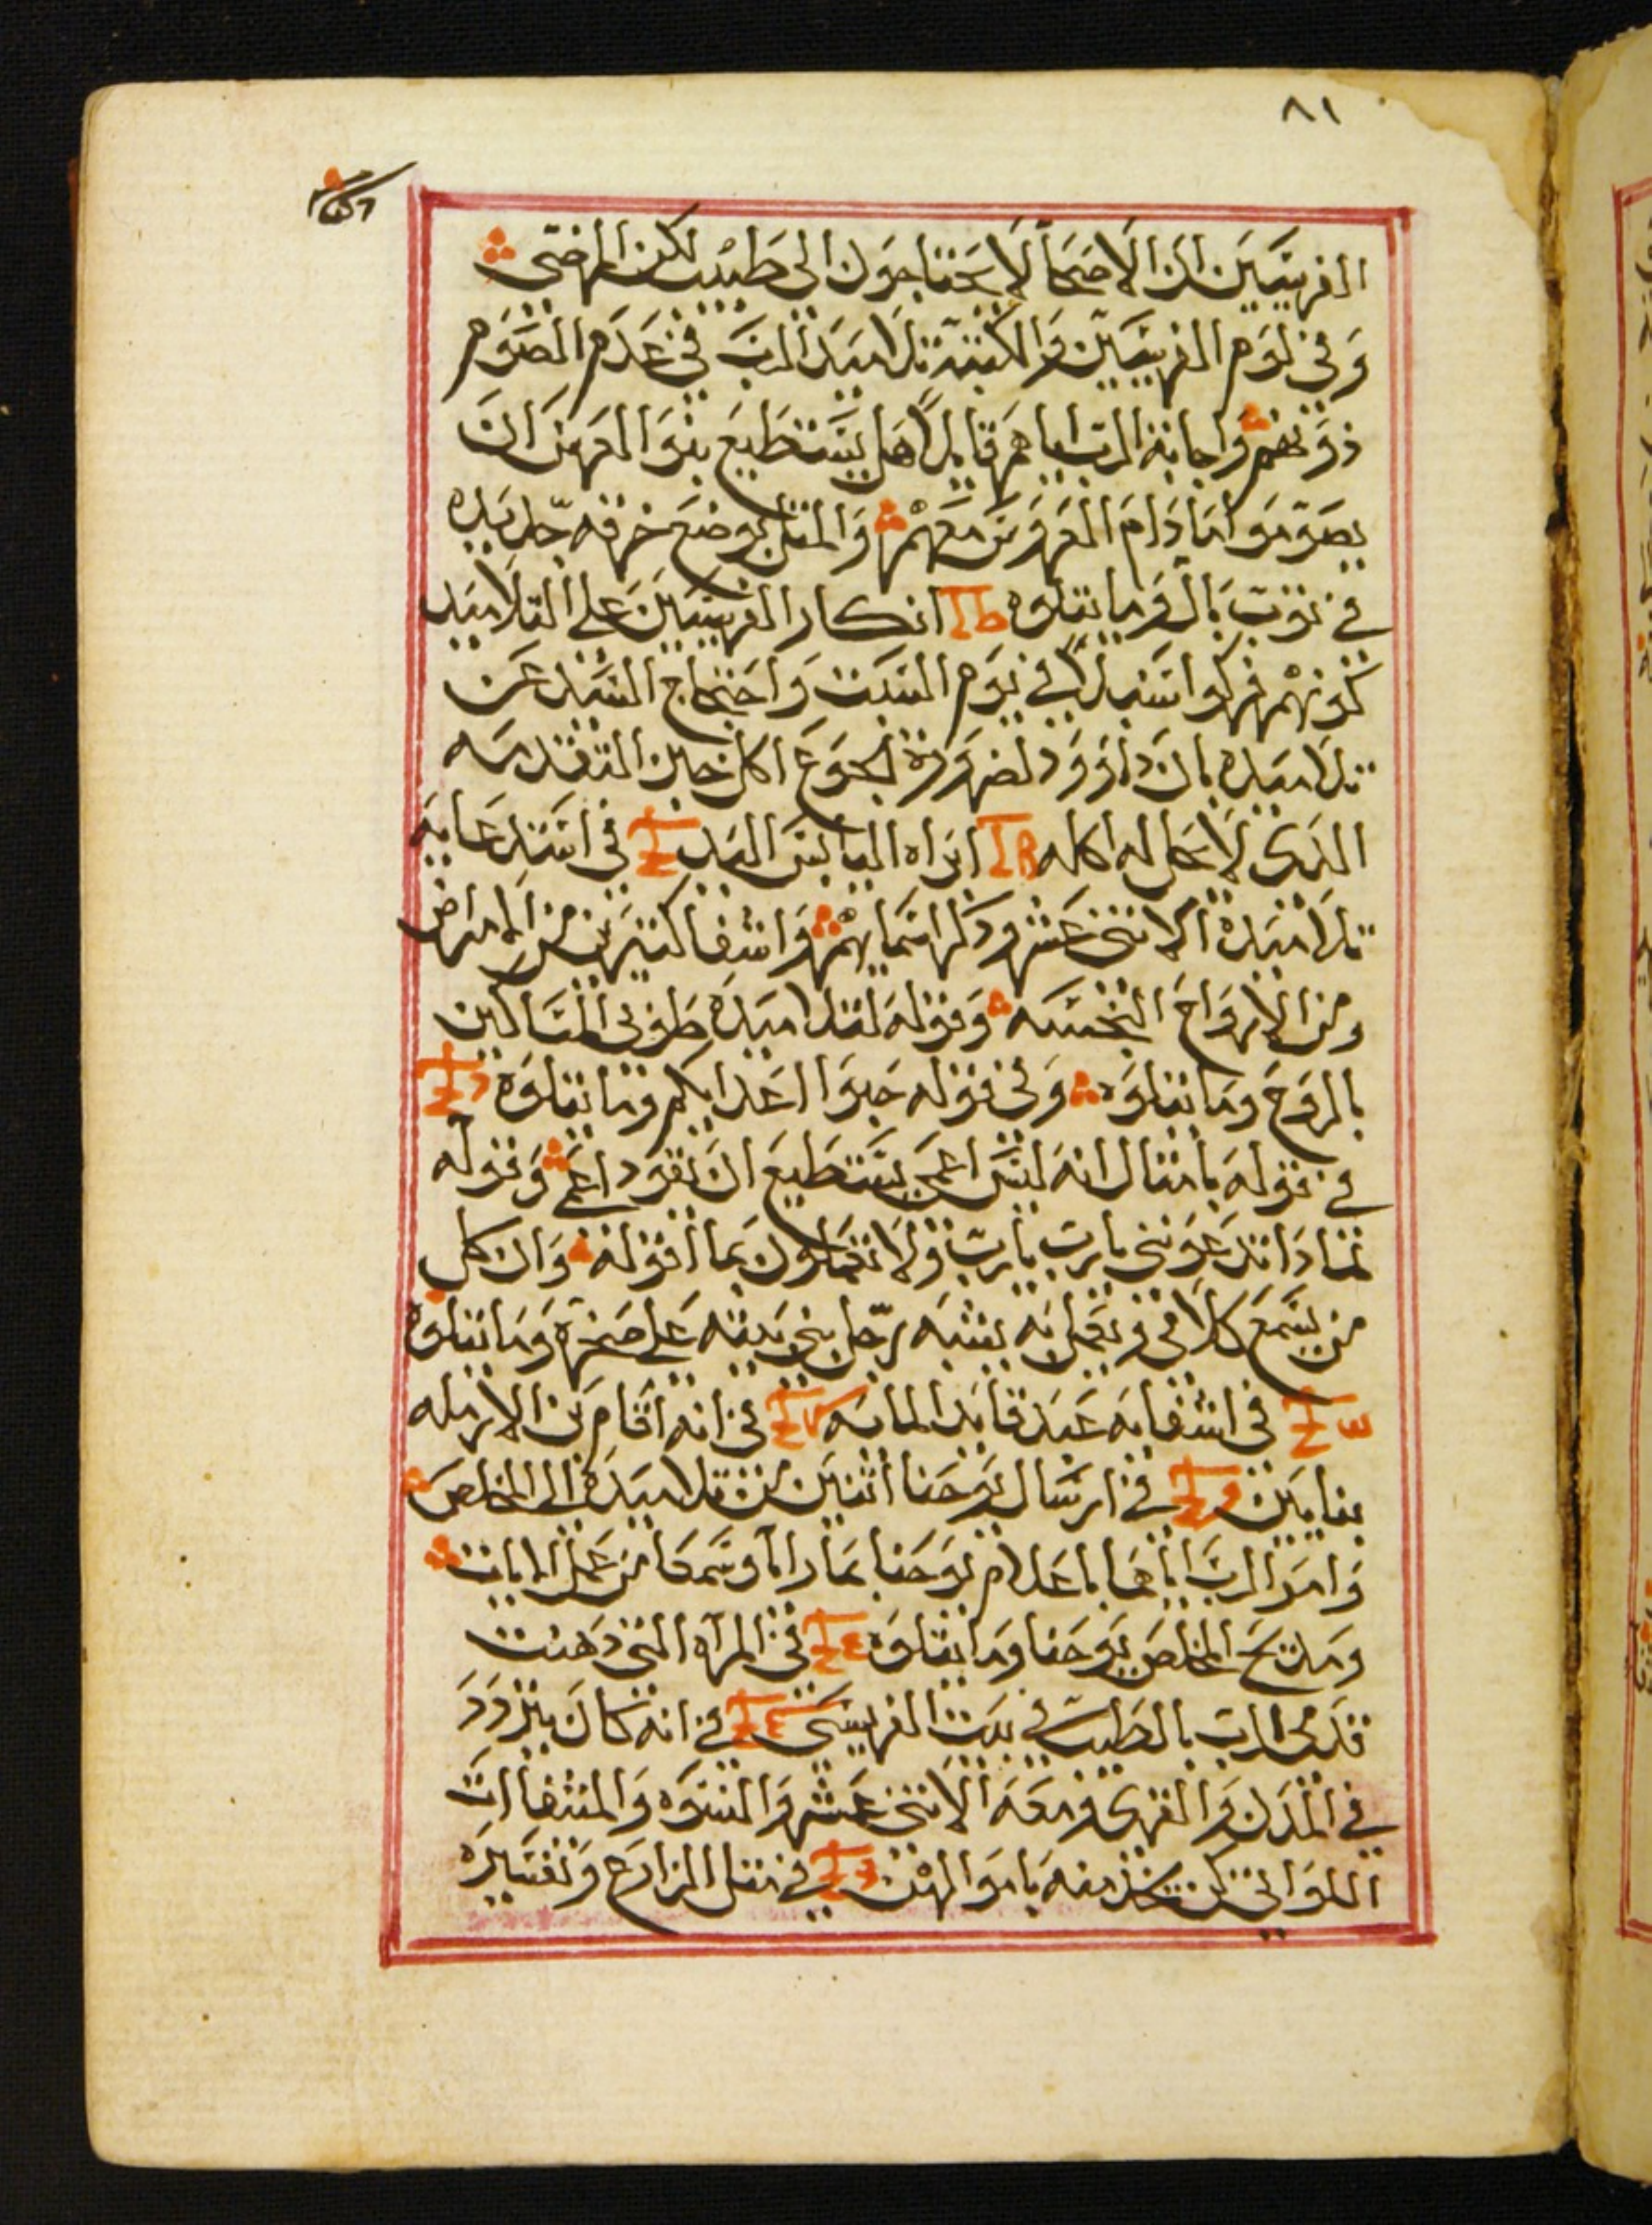 ٨١
الفريسيين ان الاصحا لا يحتاجون الى طبيب لكن المرضى
وفي لوم الفريسيين والكتبة تلاميذ الرب في عدم الصوم
ذونهم واجابة الرب اياهم قايلا هل يستطيع بنو العرس ان
يصوموا ما دام العروس معهم والمثل بوضع خرقه جديده
في ثوب بال وما يتلوه انكار الفريسيين على التلاميد
كونهم فركوا سنبلا في يوم السبت واحتجاج السيد عن
تلاميده بان داوود لضرورة الجوع اكل خبز التقدمه
الذي لا يحل له اكله ابراه اليابس اليد في استدعايه
تلاميده الاثني عشر ودكر اسمايهم واشفا كثيرين من الامراض
ومن الارواح النجسه وقوله لتلاميده طوبى للمساكين
بالروح وما يتلوه وفي قوله حبوا اعدايكم وما يتلوه
في قوله بامثال انه ليس اعمى يستطيع ان يقود اعمى وقوله
لمادا تدعونني يارب يارب ولا تعملون بما اقوله وان كل
من يسمع كلامي ويعمل به يشبه رجل بني بيته على صخره وما يتلوه
في اشفايه عبد قايد المايه في انه اقام بن الارمله
بنايين في ارسال يوحنا اثنين من تلاميده الى المخلص
وامر الرب اياهما باعلام يوحنا بما راا وسمعا من عمل الايات
ومديح المخلص يوحنا وما يتلوه في المراه التي دهنت
قدمى الرب بالطيب في بيت الفريسي في انه كان يتردد
في المدن والقرى ومعه الاثني عشر والنسوه والمتشفاات
اللواتي كن يخدمنه باموالهن في مثل الزارع وتفسيره